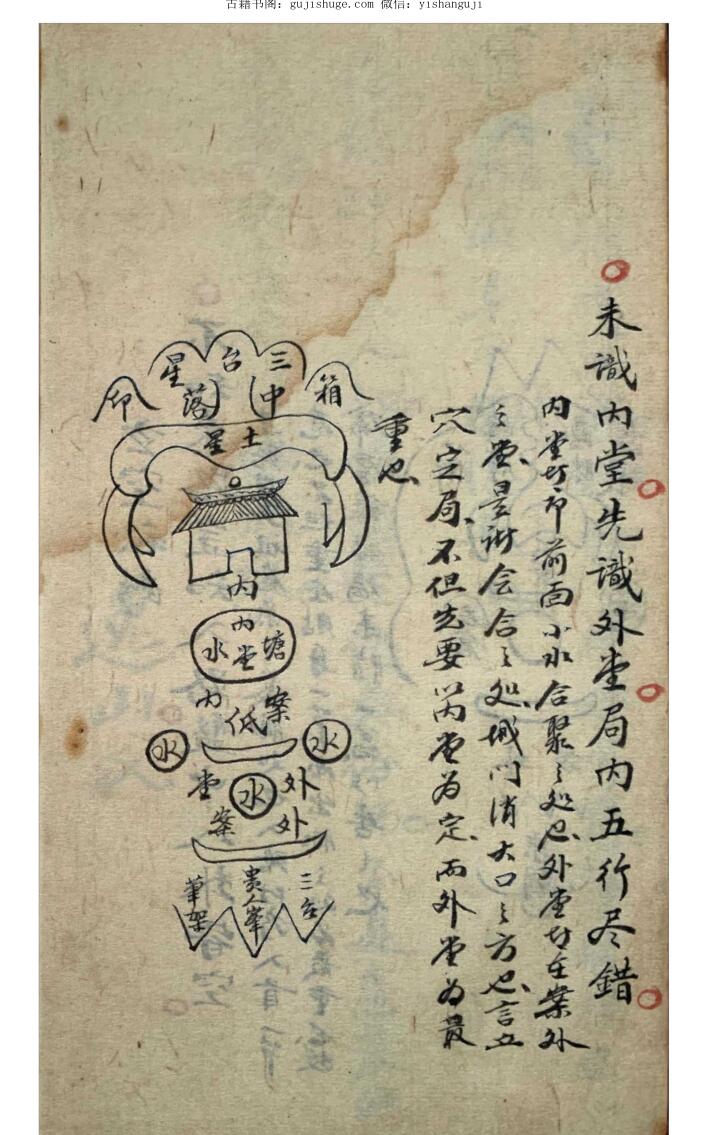 古籍书阁：gujishuge.com 微信：yishanguji
未識內堂先識外堂局內五行尽錯
內堂者即前面小水合聚之処也外堂者在案外
之堂是諸会合之処城门消大口之方也言立
穴定局不但先要以內堂为定而外堂为最
重也
三台星
中落
箱
印
土星
內
內堂
塘水
內低案
水
水
水
外堂
外案
三台
贵人峯
華架